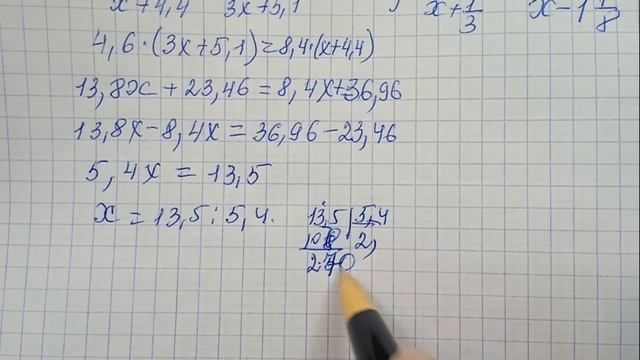 x+4,4 3x+5,1 x+1/3 x-1 1/8
4,6·(3x+5,1)=8,4·(x+4,4)
13,8x+23,46=8,4x+36,96
13,8x-8,4x=36,96-23,46
5,4x=13,5
x=13,5:5,4.
13,5 5,4
108 2,
270